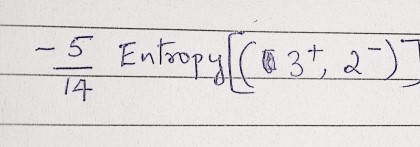 - 5/14 Entropy[(3⁺, 2⁻)]